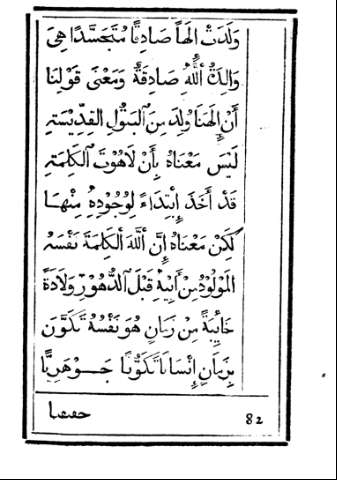 وَلَدَتْ إِلَهاً صَادِقًا مُتَجَسِّدًا هِيَ
وَالِدَةُ اللّٰهِ صَادِقَةٌ وَمَعْنَى قَوْلِنَا
أَنَّ إِلَهَنَا وُلِدَ مِنَ البَتُولِ القِدِّيسَةِ
لَيْسَ مَعْنَاهُ بِأَنَّ لَاهُوتَ الكَلِمَةِ
قَدْ أَخَذَ إِبْتِدَاءً لِوُجُودِهِ مِنْهَا
لٰكِنْ مَعْنَاهُ إِنَّ اللّٰهَ الكَلِمَةَ نَفْسَهُ
المَوْلُودُ مِنْ أَبِيهِ قَبْلَ الدُّهُورِ وِلَادَةً
مِنْ زَمَانٍ هُوَ نَفْسُهُ تَكَوَّنَ
بِزَمَانٍ إِنْسَانًا تَكَوُّنًا جَوْهَرِيًّا
82